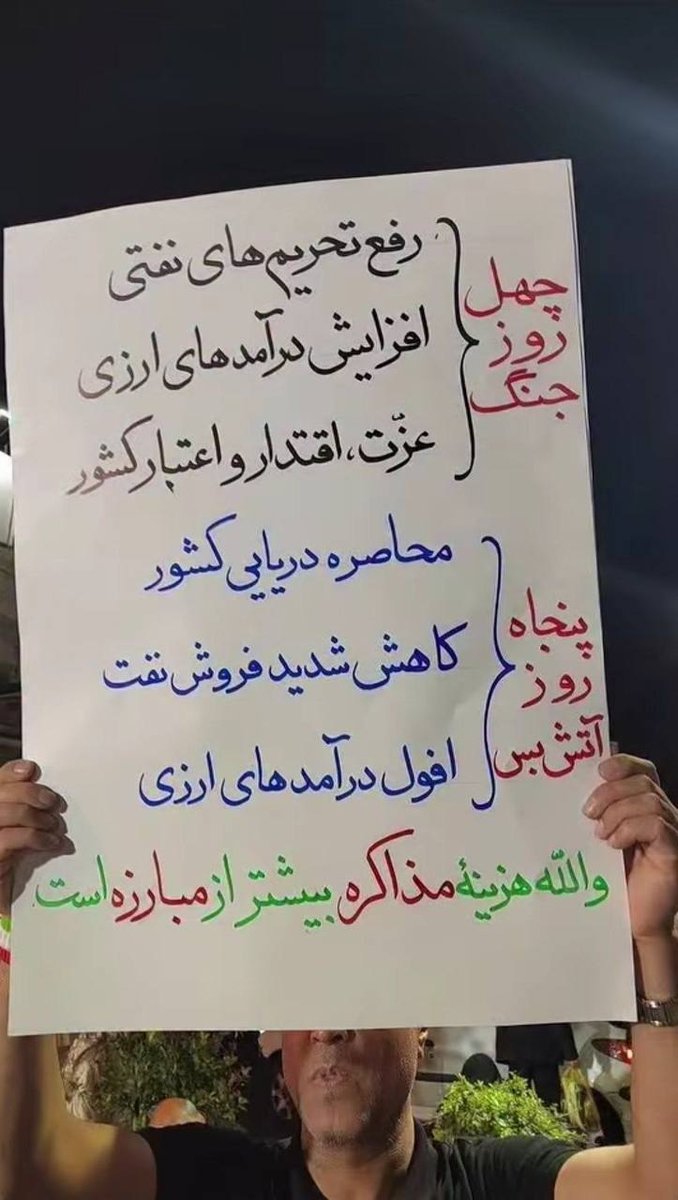 چهل
روز
جنگ
رفع تحریم‌های نفتی
افزایش درآمدهای ارزی
عزّت، اقتدار و اعتبار کشور
پنجاه
روز
آتش بس
محاصره دریایی کشور
کاهش شدید فروش نفت
افول درآمدهای ارزی
والله هزینهٔ مذاکره بیشتر از مبارزه است